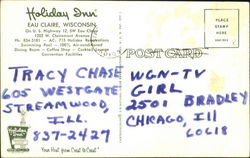 Holiday Inn
EAU CLAIRE, WISCONSIN
On U. S. Highway 12, SW Eau Claire
1202 W. Clairemont Avenue
Swimming Pool - 100% Air-conditioned
Dining Room - Coffee Shop - Cocktail Lounge
Convention Facilities
POST CARD
TRACY CHASE
605 WESTGATE
STREAMWOOD,
ILL.
837-2427
WGN-TV
GIRL
2501 BRADLEY
CHICAGO, Ill
60618
Holiday Inn
Your Host from Coast to Coast